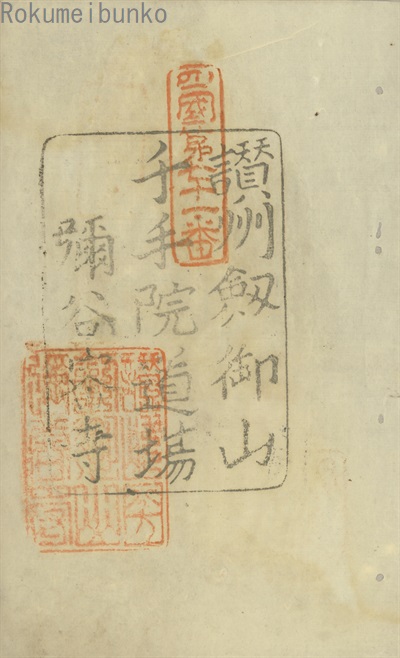 Rokumeibunko
四國第七十一番
讚州劔御山
千手院道場
彌谷寺